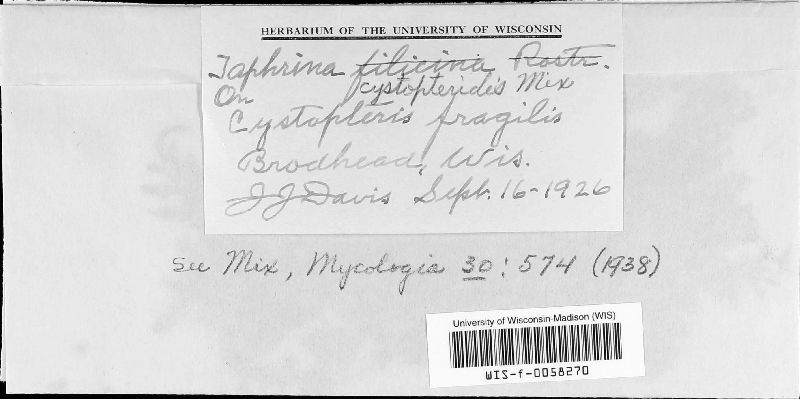 HERBARIUM OF THE UNIVERSITY OF WISCONSIN
Taphrina filicina Rostr.
cystopteridis Mix
On
Cystopteris fragilis
Brodhead, Wis.
J J Davis Sept. 16-1926
See Mix, Mycologia 30: 574 (1938)
University of Wisconsin-Madison (WIS)
WIS-f-0058270